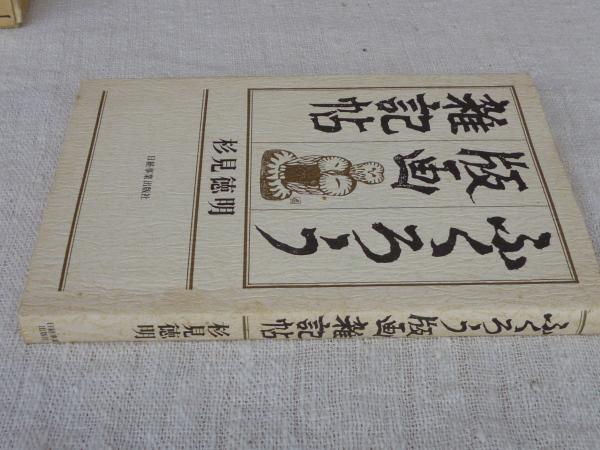 ふくろう
版画
雑記帖
杉見徳明
日経事業出版社
ふくろう版画雑記帖
杉見徳明